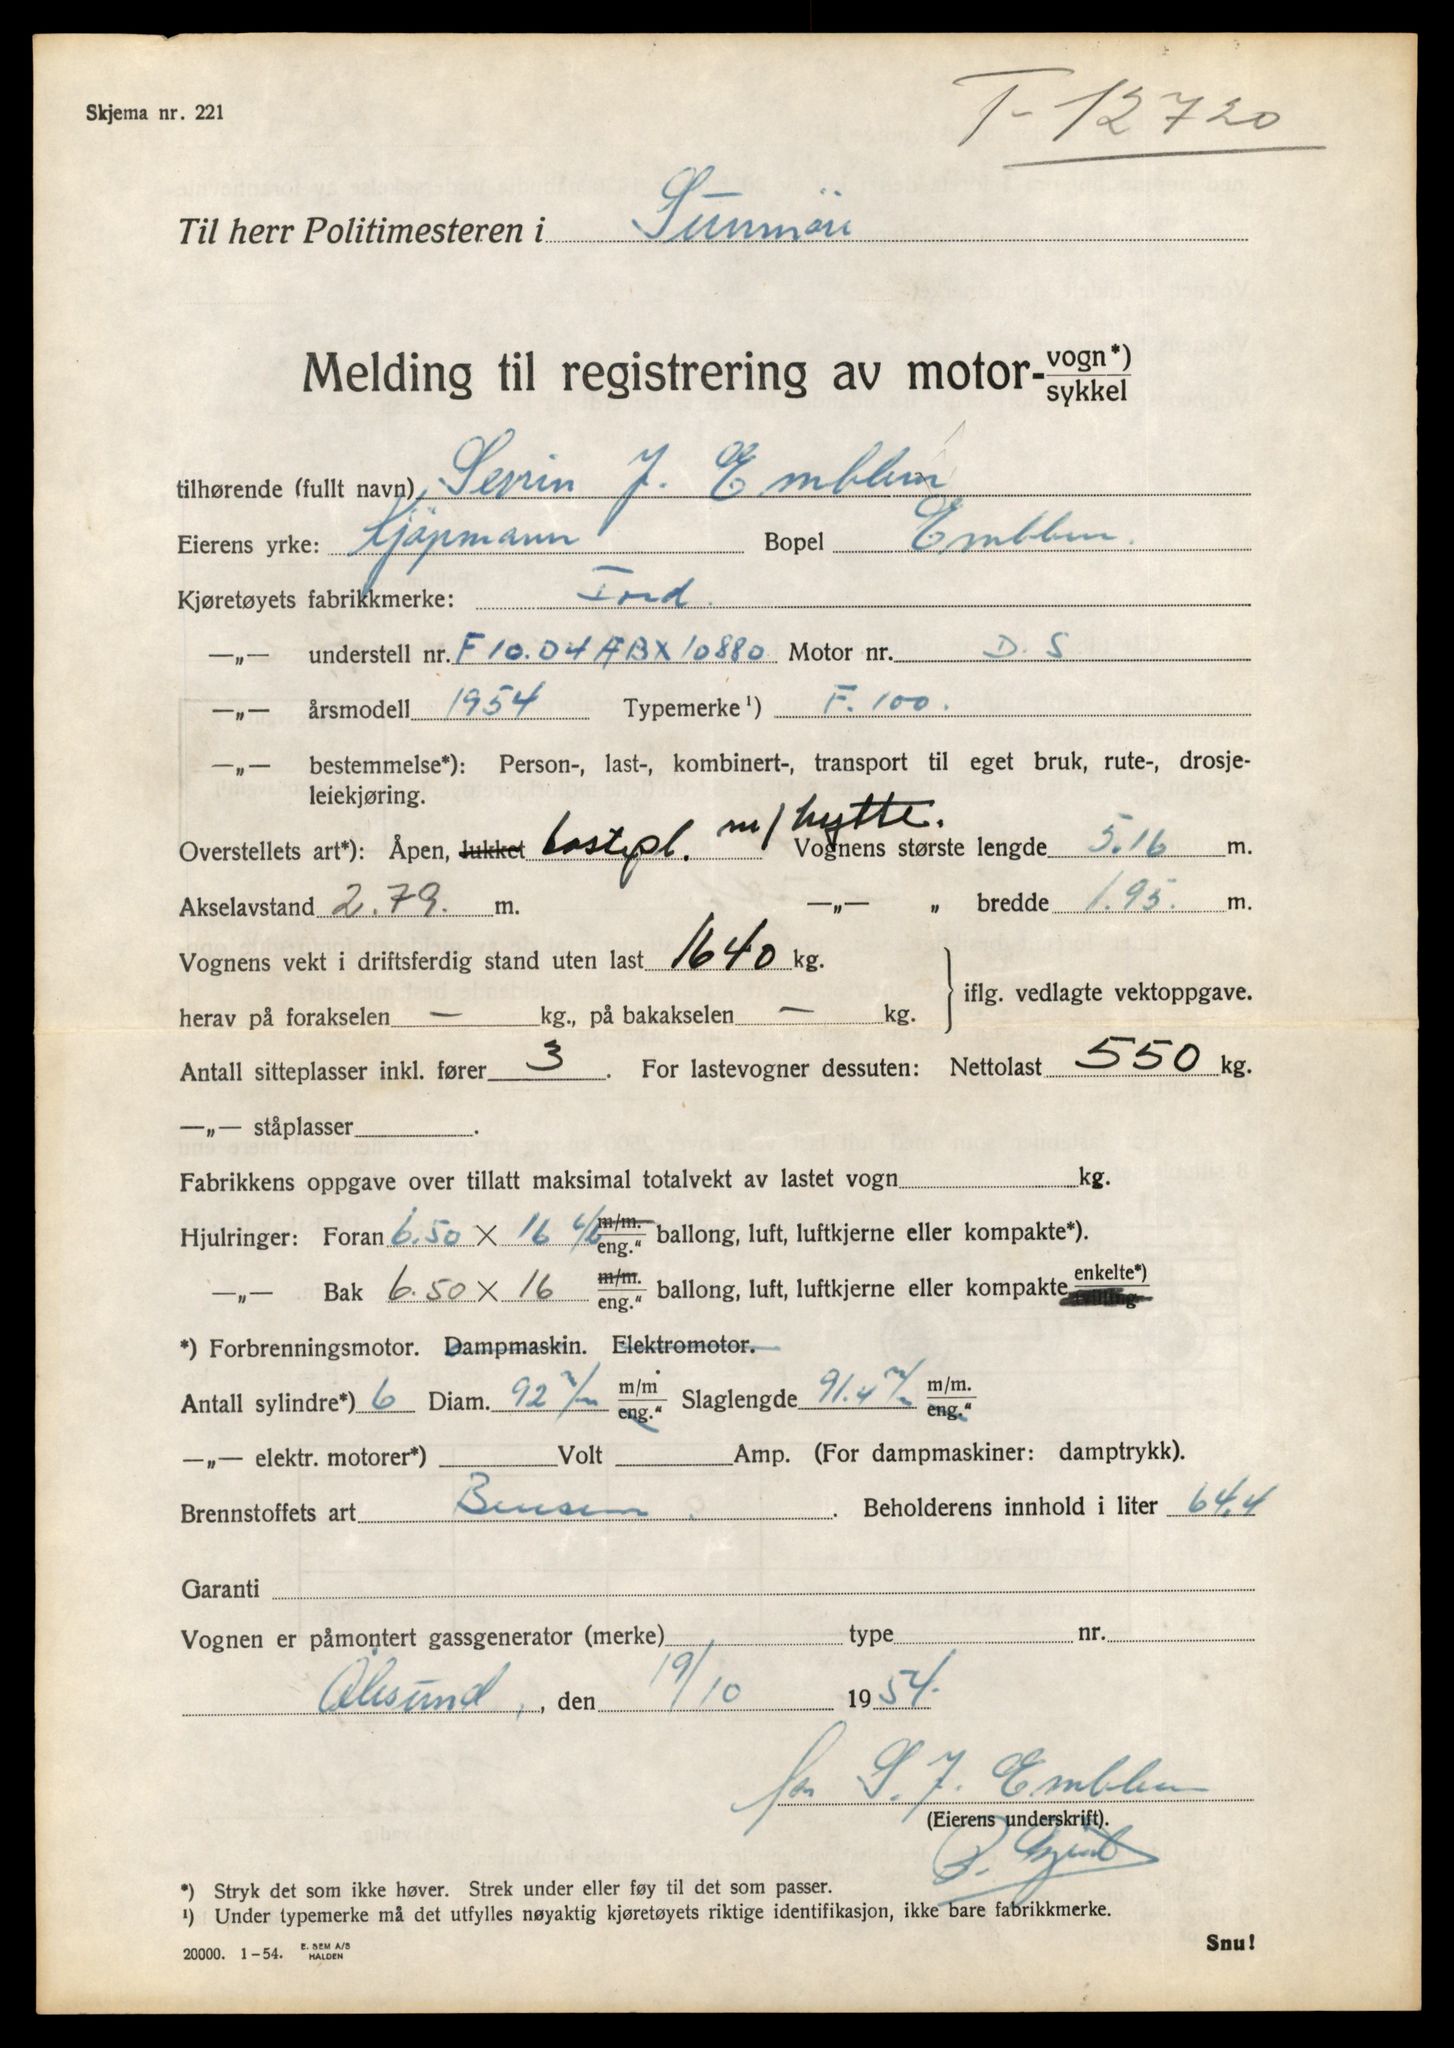 Skjema nr. 221
T-12720
Til herr Politimesteren i Sunnmöre
Melding til registrering av motor-vogn*)
sykkel
tilhørende (fullt navn) Severin J. Emblem
Eierens yrke: Kjöpmann Bopel Emblem.
Kjøretøyets fabrikkmerke: Ford.
—„— understell nr. F10.D4ABX10880 Motor nr. D. S
—„— årsmodell 1954 Typemerke¹) F. 100.
—„— bestemmelse*): Person-, last-, kombinert-, transport til eget bruk, rute-, drosje-
leiekjøring.
Overstellets art*): Åpen, lukket lastepl. m/hytte. Vognens største lengde 5.16 m.
Akselavstand 2.79. m. —„— „ bredde 1.95. m.
Vognens vekt i driftsferdig stand uten last 1640 kg.
herav på forakselen — kg., på bakakselen — kg. iflg. vedlagte vektoppgave.
Antall sitteplasser inkl. fører 3. For lastevogner dessuten: Nettolast 550 kg.
—„— ståplasser .
Fabrikkens oppgave over tillatt maksimal totalvekt av lastet vogn kg.
Hjulringer: Foran 6.50 × 16 m/m. eng.“ ballong, luft, luftkjerne eller kompakte*).
—„— Bak 6.50 × 16 m/m. eng.“ ballong, luft, luftkjerne eller kompakte enkelte*)
*) Forbrenningsmotor. Dampmaskin. Elektromotor.
Antall sylindre*) 6 Diam. 92 m/m m/m eng.“ Slaglengde 91.4 m/m m/m. eng.“
—„— elektr. motorer*) Volt Amp. (For dampmaskiner: damptrykk).
Brennstoffets art Bensin. Beholderens innhold i liter 64,4
Garanti
Vognen er påmontert gassgenerator (merke) type nr.
Ålesund, den 19/10 1954.
for S. J. Emblem
(Eierens underskrift).
*) Stryk det som ikke høver. Strek under eller føy til det som passer.
¹) Under typemerke må det utfylles nøyaktig kjøretøyets riktige identifikasjon, ikke bare fabrikkmerke.
20000. 1-54. E. SEM A/S HALDEN
Snu!